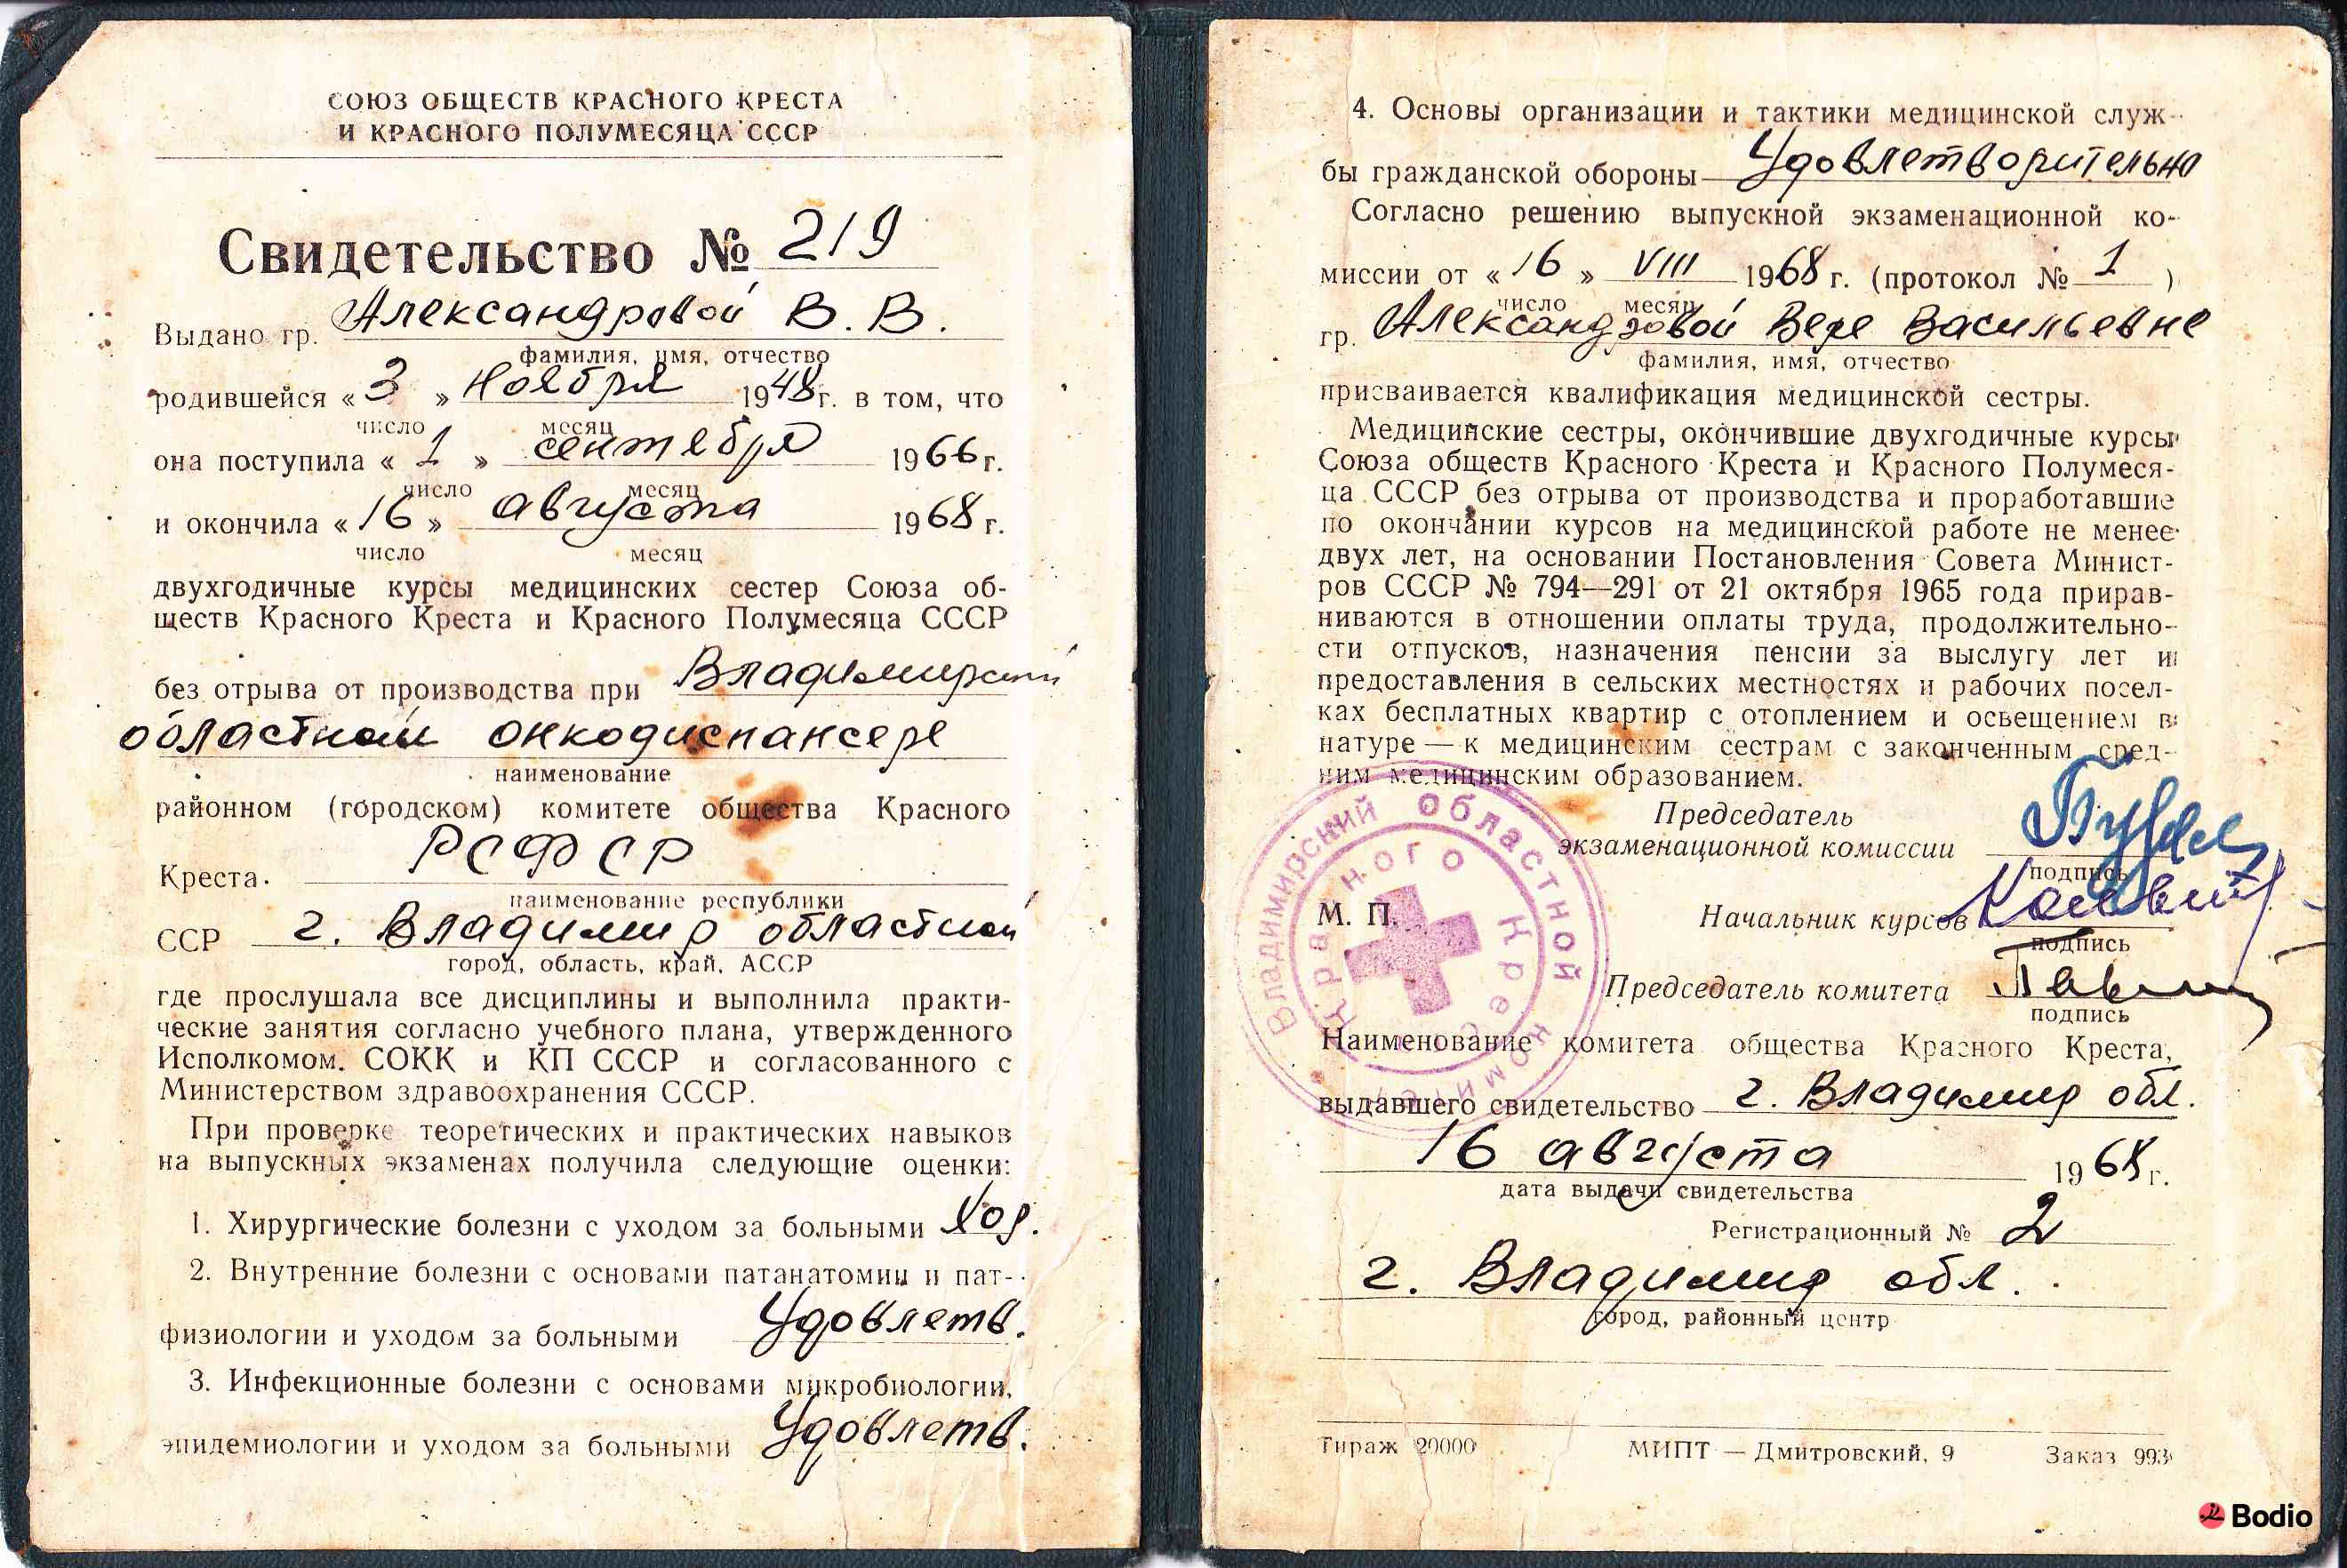 СОЮЗ ОБЩЕСТВ КРАСНОГО КРЕСТА
И КРАСНОГО ПОЛУМЕСЯЦА СССР
Свидетельство № 219
Выдано гр. Александровой В. В.
фамилия, имя, отчество
родившейся « 3 » ноября 1948 г. в том, что
число месяц
она поступила « 1 » сентября 1966 г.
число месяц
и окончила « 16 » августа 1968 г.
число месяц
двухгодичные курсы медицинских сестер Союза об-
ществ Красного Креста и Красного Полумесяца СССР
без отрыва от производства при Владимирском
областном онкодиспансере
наименование
районном (городском) комитете общества Красного
Креста. РСФСР
наименование республики
ССР г. Владимир областной
город, область, край, АССР
где прослушала все дисциплины и выполнила практи-
ческие занятия согласно учебного плана, утвержденного
Исполкомом. СОКК и КП СССР и согласованного с
Министерством здравоохранения СССР.
При проверке теоретических и практических навыков
на выпускных экзаменах получила следующие оценки:
1. Хирургические болезни с уходом за больными Хор.
2. Внутренние болезни с основами патанатомии и пат-
физиологии и уходом за больными Удовлетв.
3. Инфекционные болезни с основами микробиологии,
эпидемиологии и уходом за больными Удовлетв.
4. Основы организации и тактики медицинской служ-
бы гражданской обороны Удовлетворительно
Согласно решению выпускной экзаменационной ко-
миссии от « 16 » VIII 1968 г. (протокол № 1 )
число месяц
гр. Александровой Вере Васильевне
фамилия, имя, отчество
присваивается квалификация медицинской сестры.
Медицинские сестры, окончившие двухгодичные курсы
Союза обществ Красного Креста и Красного Полумеся-
ца СССР без отрыва от производства и проработавшие
по окончании курсов на медицинской работе не менее
двух лет, на основании Постановления Совета Минист-
ров СССР № 794—291 от 21 октября 1965 года прирав-
ниваются в отношении оплаты труда, продолжительно-
сти отпусков, назначения пенсии за выслугу лет и
предоставления в сельских местностях и рабочих посел-
ках бесплатных квартир с отоплением и освещением в
натуре — к медицинским сестрам с законченным сред-
ним медицинским образованием.
Председатель
экзаменационной комиссии
подпись
М. П. Начальник курсов
подпись
Председатель комитета
подпись
Владимирский областной комитет
Красного Креста
Наименование комитета общества Красного Креста,
выдавшего свидетельство г. Владимир обл.
16 августа 1968 г.
дата выдачи свидетельства
Регистрационный № 2
г. Владимир обл.
город, районный центр
Тираж 20000 МИПТ — Дмитровский, 9 Заказ 993
Bodio